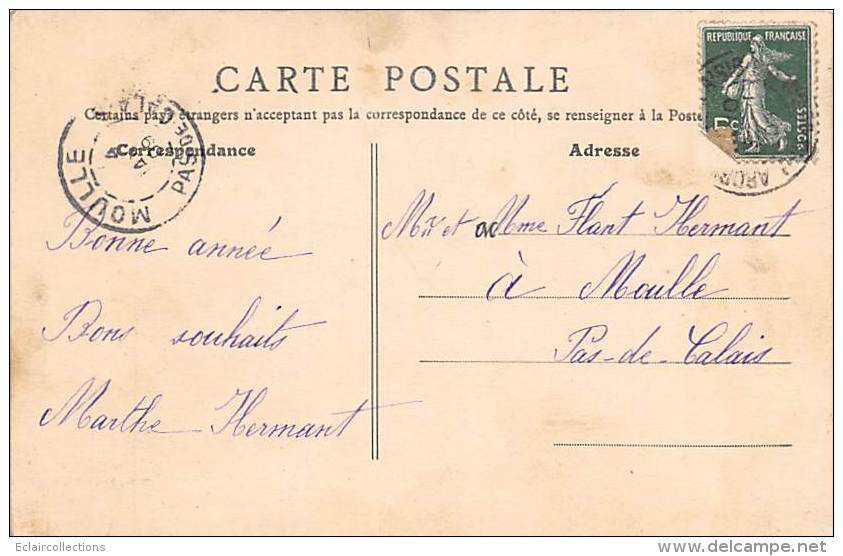 RÉPUBLIQUE FRANÇAISE
POSTES
CARTE POSTALE
Certains pays étrangers n'acceptant pas la correspondance de ce côté, se renseigner à la Poste
Correspondance
Adresse
MOULLE
PAS DE CALAIS
Bonne année
Bons souhaits
Marthe Hermant
Mr et Mme Flant Hermant
à Moulle
Pas-de-Calais
Eclaircollections
www.delcampe.net